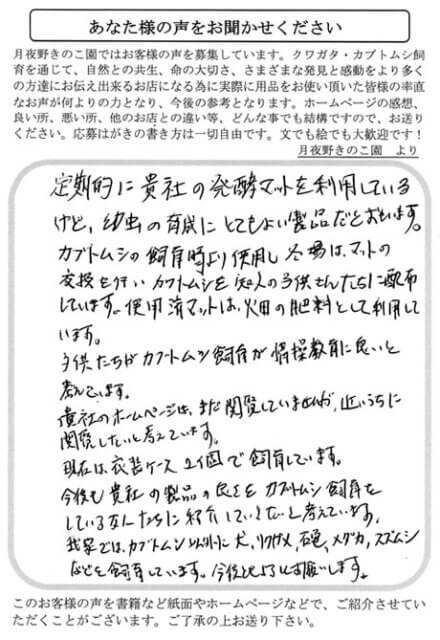 あなた様の声をお聞かせください
月夜野きのこ園ではお客様の声を募集しています。クワガタ・カブトムシ飼
育を通じて、自然との共生、命の大切さ、さまざまな発見と感動をより多く
の方達にお伝え出来るお店になる為に実際に用品をお使い頂いた皆様の率直
なお声が何よりの力となり、今後の参考となります。ホームページの感想、
良い所、悪い所、他のお店との違い等、どんな事でも結構ですので、お送り
ください。応募はがきの書き方は一切自由です。文でも絵でも大歓迎です！
月夜野きのこ園　より
定期的に貴社の発酵マットを利用している
けど、幼虫の育成にとてもよい製品だとおもいます。
カブトムシの飼育時より使用し 冬場は、マットの
交換を行い カブトムシを知人の子供さんたちに配布
しています。使用済マットは、火田の肥料として利用して
います。
子供たちがカブトムシ飼育が情操教育に良いと
考えています。
貴社のホームページは、まだ閲覧していませんが、近いうちに
閲覧したいと考えています。
現在は衣装ケース 2個で飼育しています。
今後も貴社の製品の良さをカブトムシ飼育を
している友人たちに紹介していきたいと考えています。
我家では、カブトムシ以外に犬、リクガメ、石亀、メダカ、スズムシ
などを飼育しています。今後ともよろしくお願いします。
このお客様の声を書籍など紙面やホームページなどで、ご紹介させてい
ただくことがございます。ご了承の上お送り下さい。